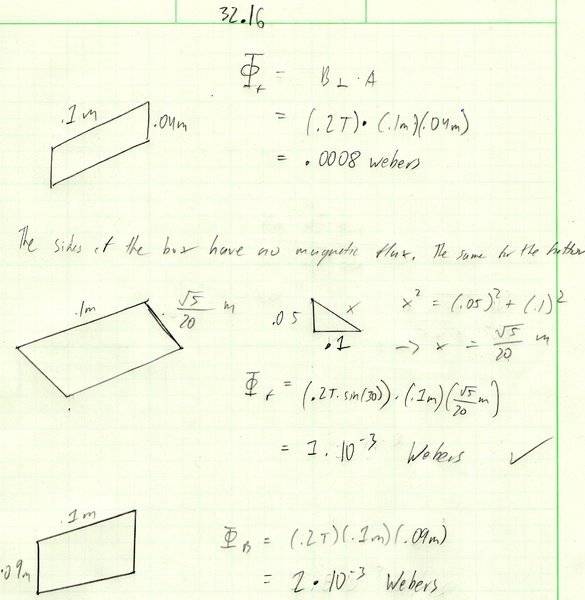 32.16
Φ_t = B⊥ · A
.1m .04m
= (.2T) · (.1m)(.04m)
= .0008 webers
The sides of the box have no magnetic flux. The same for the bottom
.1m √5/20 m
.05 x .1
x² = (.05)² + (.1)²
→ x = √5/20 m
Φ_t = (.2T·sin(30)) · (.1m)(√5/20 m)
= 1·10⁻³ Webers ✓
.1m
.09m
Φ_B = (.2T)(.1m)(.09m)
= 2·10⁻³ Webers